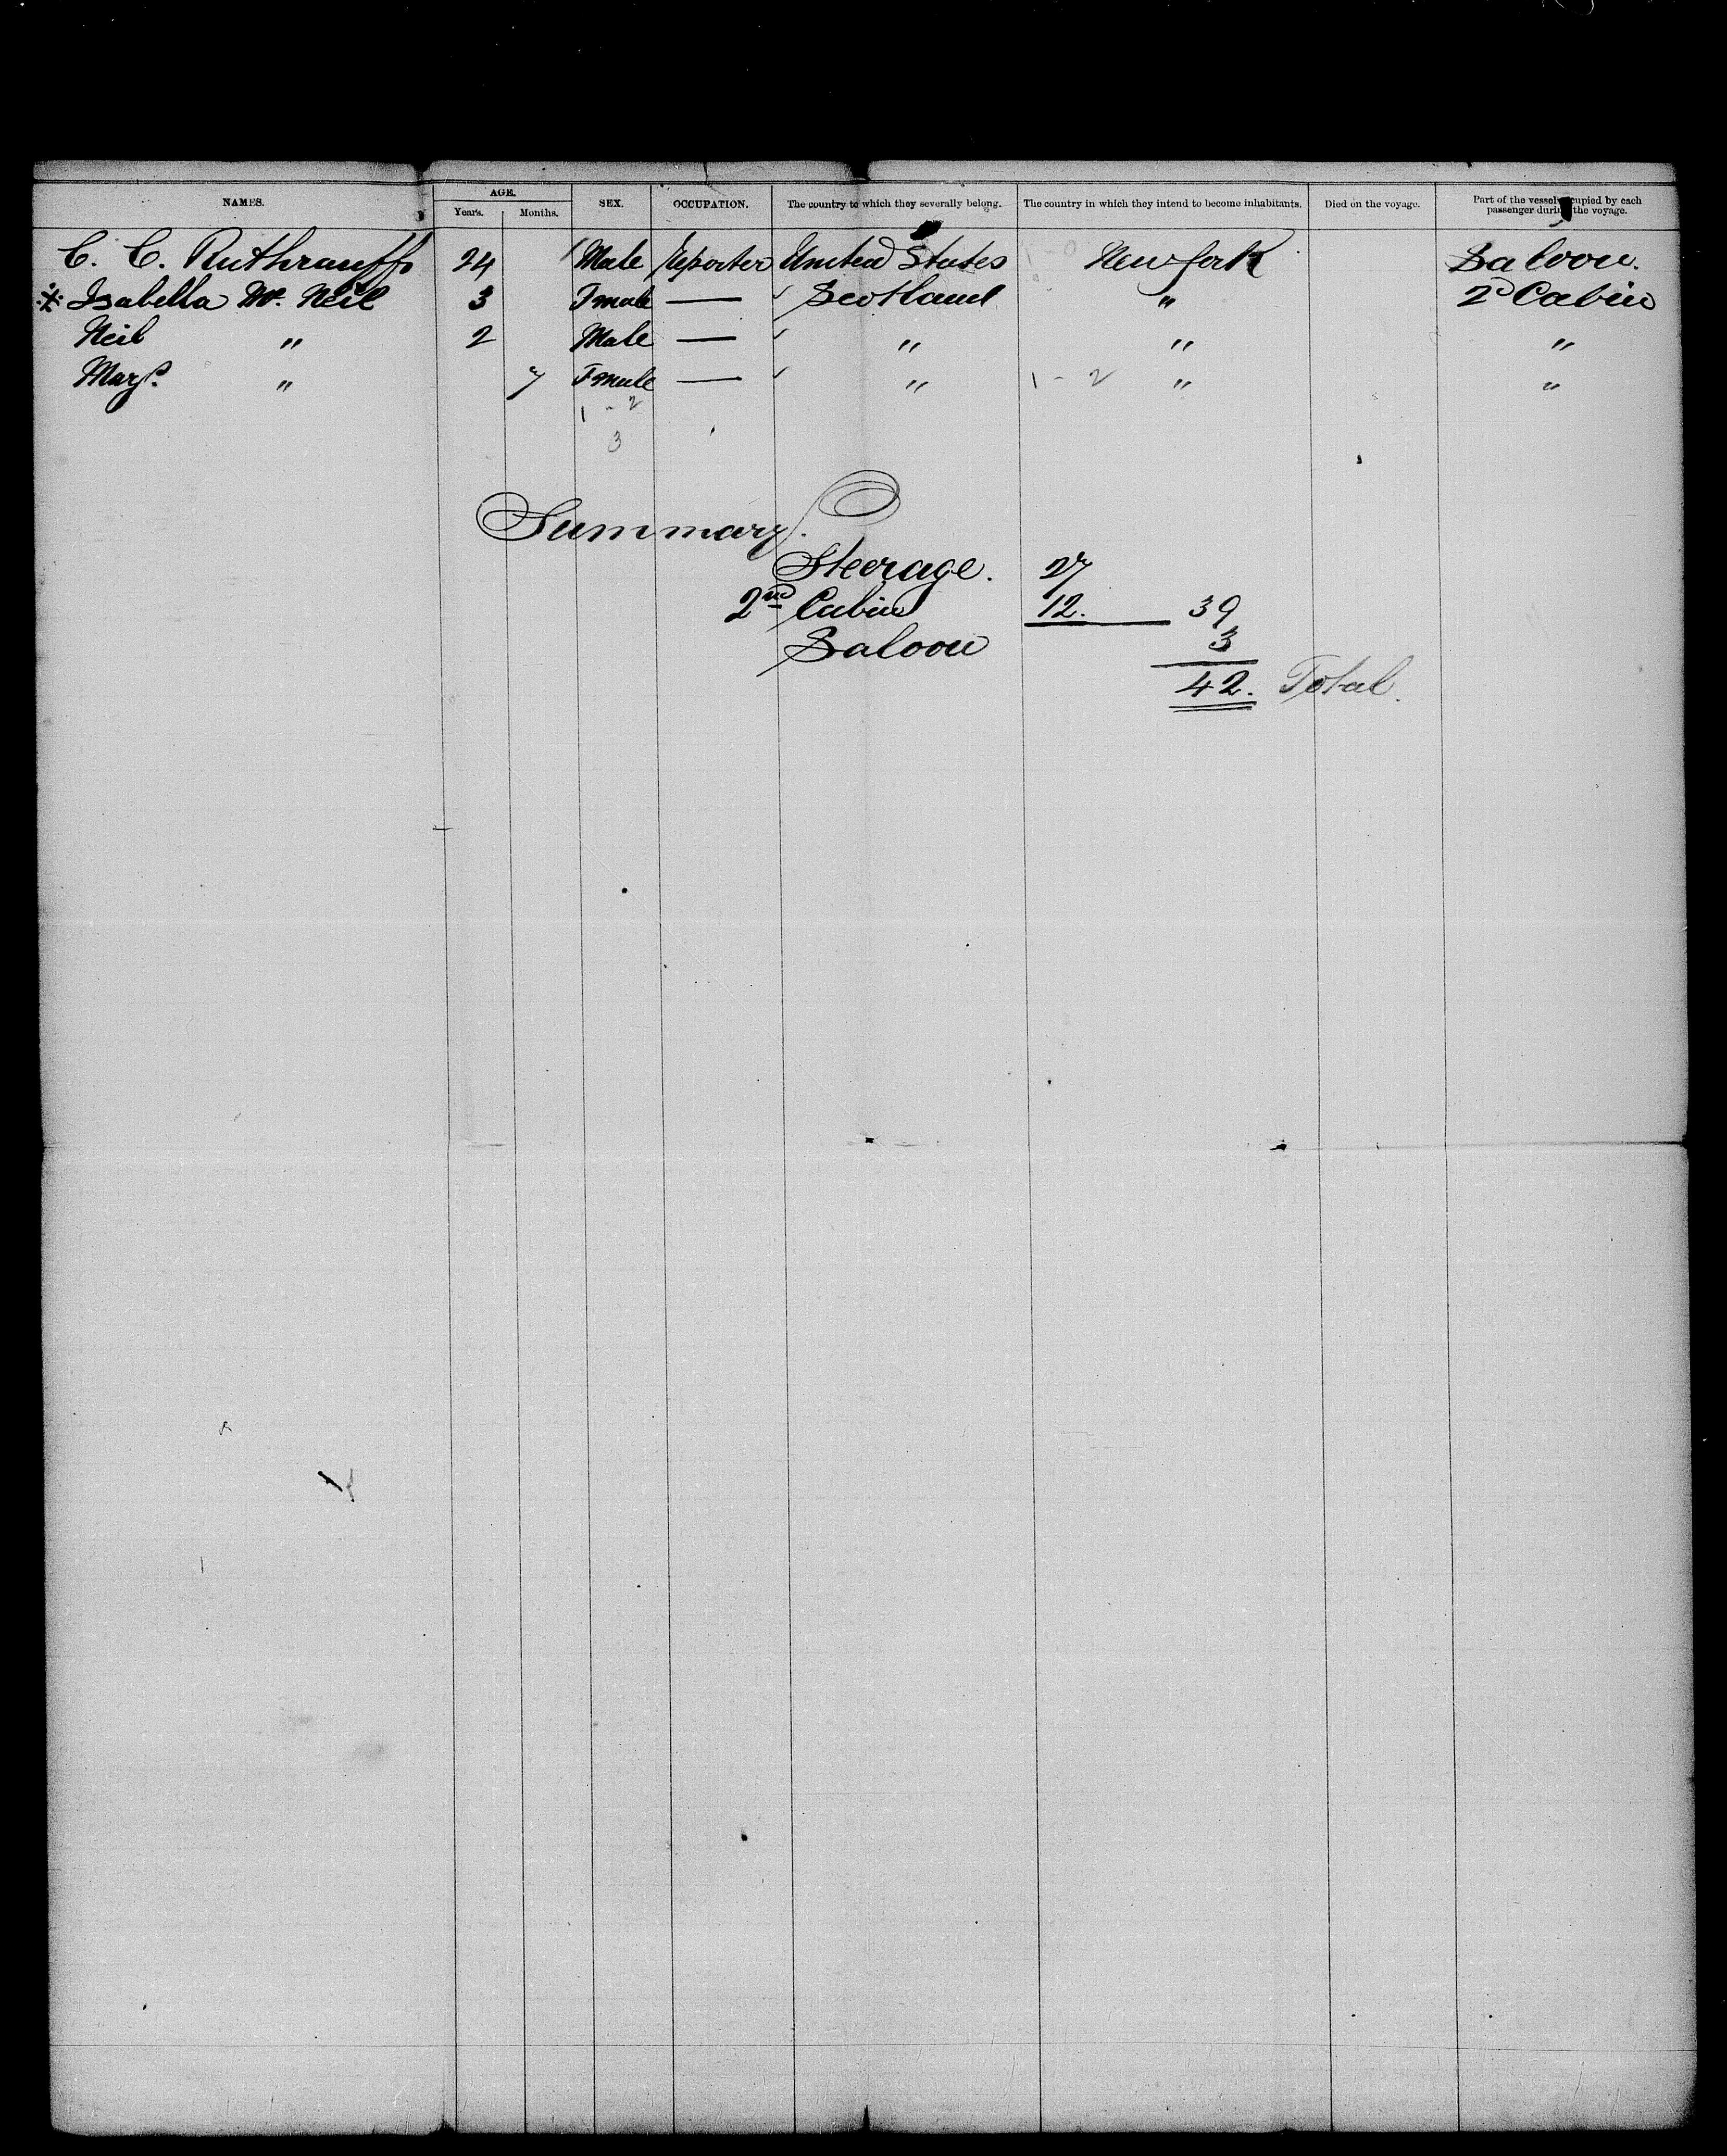 NAMES. AGE. SEX. OCCUPATION. The country to which they severally belong. The country in which they intend to become inhabitants. Died on the voyage. Part of the vessel occupied by each passenger during the voyage.
Years. Months.
C. C. Ruthrauff 24 Male Reporter United States 1 - 0 New York Saloon.
Isabella Mc. Neil 3 Fmale — Scotland " 2d Cabin
Neil " 2 Male — " " "
Margt. " 7 Fmale — " 1 - 2 " "
1 - 2
3
Summary.
Steerage. 27
2nd Cabin 12. 39
Saloon 3
42. Total.